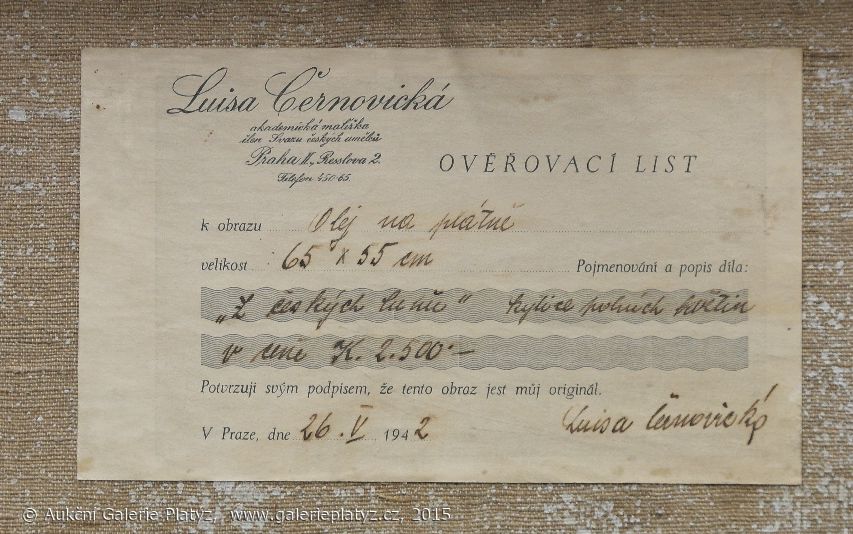 Luisa Černovická
akademická malířka
člen Svazu českých umělců
Praha II., Resslova 2.
Telefon 450-65.
OVĚŘOVACÍ LIST
k obrazu Olej na plátně
velikost 65 x 55 cm Pojmenování a popis díla:
„Z českých luhů“ kytice polních květin
v ceně K. 2.500.—
Potvrzuji svým podpisem, že tento obraz jest můj originál.
V Praze, dne 26. V. 1942 Luisa Černovická
© Aukční Galerie Platýz, www.galerieplatyz.cz, 2015